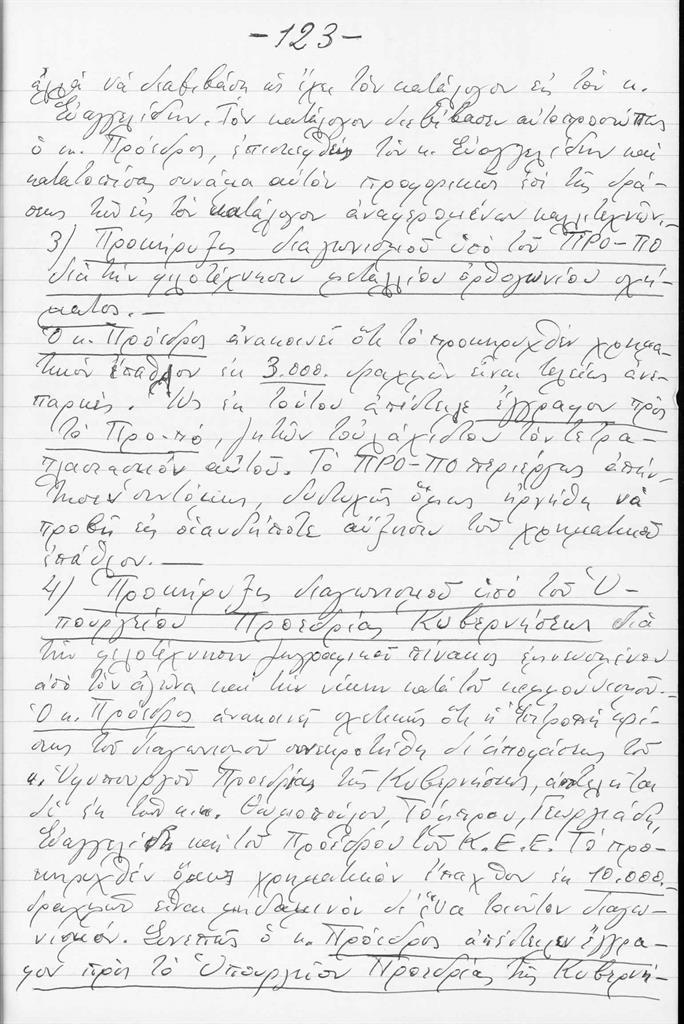 -123-
ἀλλά νά διαβιβάση ὡς ἔχει τόν κατάλογον εἰς τόν κ.
Εὐαγγελίδην. Τόν κατάλογον διεβίβασεν αὐτοπροσώπως
ὁ κ. Πρόεδρος, ἐπισκεφθείς τόν κ. Εὐαγγελίδην καί
κατατοπίσας συνάμα αὐτόν προφορικῶς ἐπί τῆς δρά-
σεως τῶν εἰς τόν κατάλογον ἀναφερομένων καλλιτεχνῶν.-
3) Προκήρυξις διαγωνισμοῦ ὑπό τοῦ ΠΡΟ-ΠΟ
διά τήν φιλοτέχνησιν μεταλλίου ὀρθογωνίου σχή-
ματος.-
Ὁ κ. Πρόεδρος ἀνακοινεῖ ὅτι τό προκηρυχθέν χρημα-
τικόν ἔπαθλον ἐκ 3.000. δραχμῶν εἶναι τελείως ἀνε-
παρκές. Ὡς ἐκ τούτου ἀπέστειλε ἔγγραφον πρός
τό Προ-πό, ζητῶν τοὐλάχιστον τόν τετρα-
πλασιασμόν αὐτοῦ. Τό ΠΡΟ-ΠΟ περιέργως ἀπήν-
τησεν συντόμως, δυστυχῶς ὅμως ἠρνήθη νά
προβῆ εἰς οἱανδήποτε αὔξησιν τοῦ χρηματικοῦ
ἐπάθλου.-
4) Προκήρυξις διαγωνισμοῦ ὑπό τοῦ Ὑ-
πουργείου Προεδρίας Κυβερνήσεως διά
τήν φιλοτέχνησιν ζωγραφικοῦ πίνακος ἐμπνευσμένου
ἀπό τόν ἀγῶνα καί τήν νίκην κατά τοῦ κομμουνισμοῦ.-
Ὁ κ. Πρόεδρος ἀνακοινεῖ σχετικῶς ὅτι ἡ Ἐπιτροπή κρί-
σεως τοῦ διαγωνισμοῦ συνεκροτήθη δι' ἀποφάσεως τοῦ
κ. Ὑφυπουργοῦ Προεδρίας τῆς Κυβερνήσεως, ἀποτελεῖται
δέ ἐκ τῶν κ.κ. Θωμοπούλου, Τόμπρου, Γεωργιάδη,
Εὐαγγελίδη καί τοῦ Προέδρου τοῦ Κ.Ε.Ε. Τό προ-
κηρυχθέν ὅμως χρηματικόν ἔπαθλον ἐκ 10.000.-
δραχμῶν εἶναι μηδαμινόν δι' ἕνα τοιοῦτον διαγω-
νισμόν. Συνεπῶς ὁ κ. Πρόεδρος ἀπέστειλεν ἔγγρα-
φον πρός τό Ὑπουργεῖον Προεδρίας τῆς Κυβερνή-